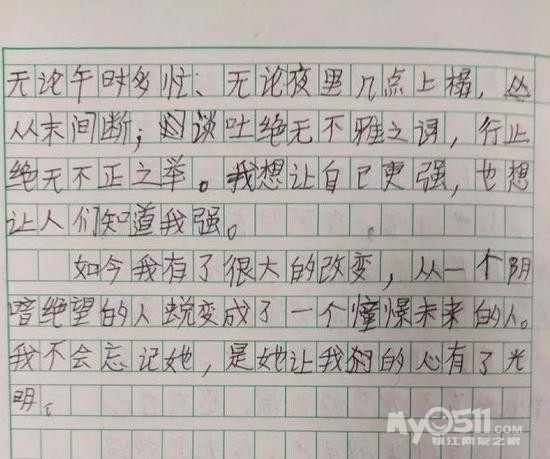 无论午时多忙、无论夜里几点上榻,
从未间断;谈吐绝无不雅之词,行止
绝无不正之举。我想让自己更强,也想
让人们知道我强。
如今我有了很大的改变,从一个阴
暗绝望的人蜕变成了一个憧憬未来的人。
我不会忘记她,是她让我的心有了光
明。
My0511.com
镇江网友之家